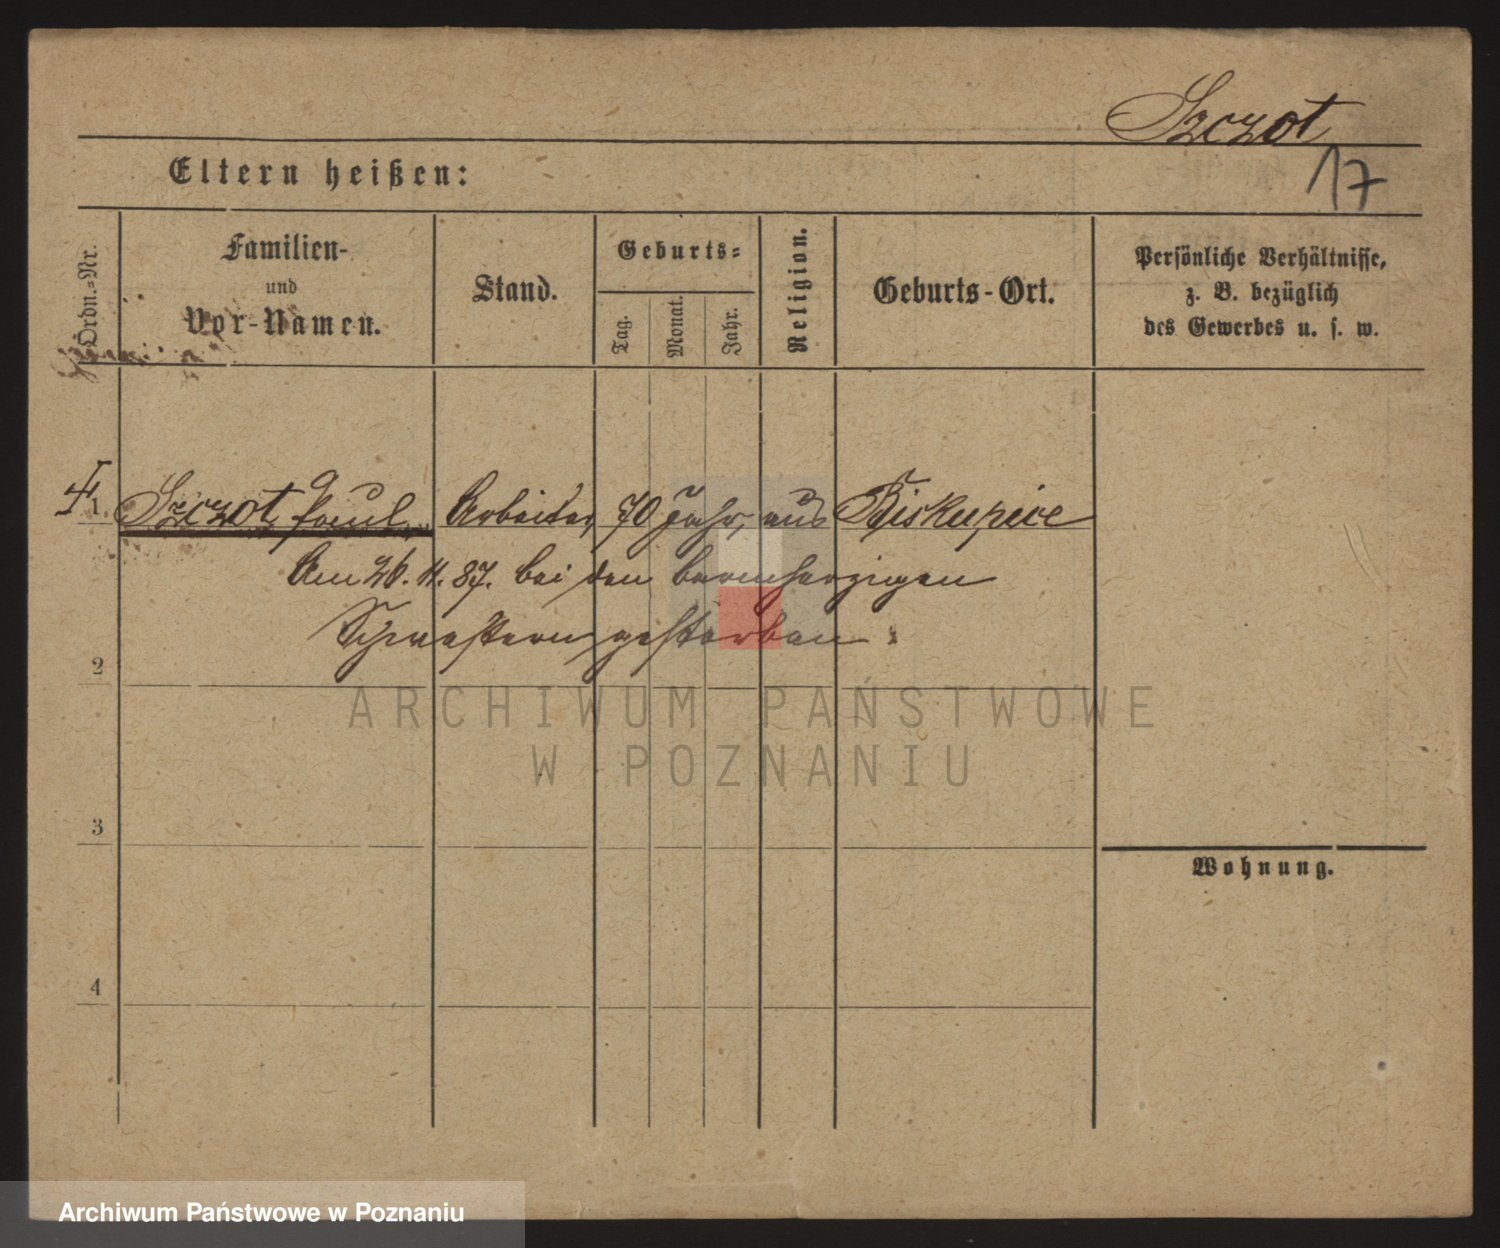 Szczot
17
Eltern heißen:
Ordn.-Nr.
Familien-
und
Vor-Namen.
Stand.
Geburts-
Tag.
Monat.
Jahr.
Religion.
Geburts-Ort.
Persönliche Verhältnisse,
z. B. bezüglich
des Gewerbes u. s. w.
1 Szczot, Paul, Arbeiter, 70 Jahr, aus Biskupice
Am 26. 11. 87. bei den barmherzigen
Schwestern gestorben.
2
3
4
Wohnung.
ARCHIWUM PAŃSTWOWE
W POZNANIU
Archiwum Państwowe w Poznaniu